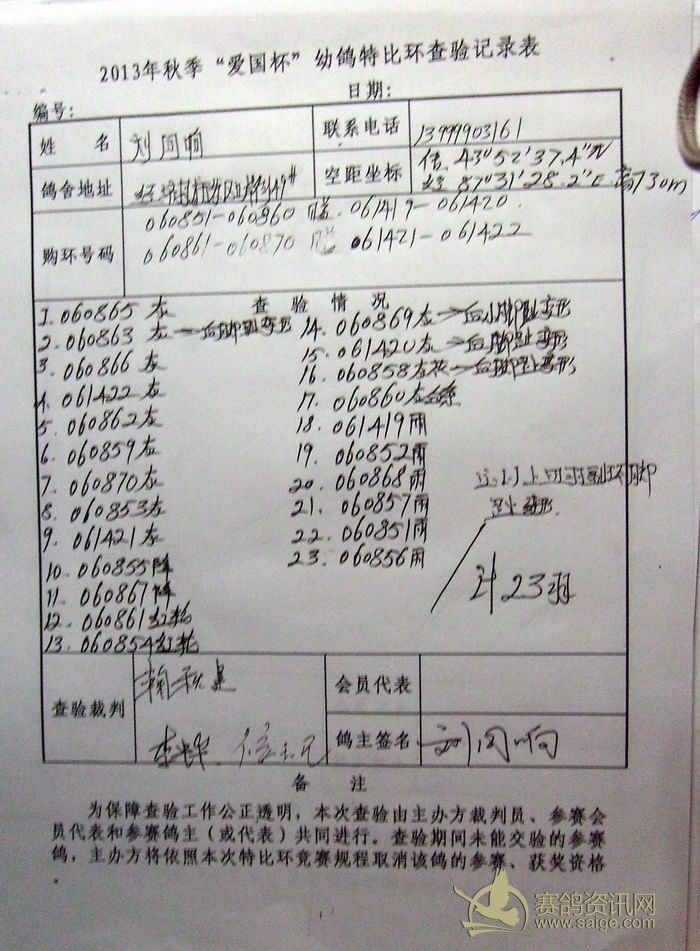 2013年秋季“爱国杯”幼鸽特比环查验记录表
编号: 日期:
姓 名 刘同响 联系电话 13999903161
鸽舍地址 空距坐标 43°52'37.4"N
87°31'28.2"E 高730m
购环号码 060851-060860 赠 061419-061420
060861-060870 赠 061421-061422
查 验 情 况
1. 060865 灰
2. 060863 灰
3. 060866 灰
4. 061422 灰
5. 060862 灰
6. 060859 灰
7. 060870 灰
8. 060853 灰
9. 061421 灰
10. 060855 降
11. 060867 降
12. 060861 红轮
13. 060854 红轮
14. 060869 灰→右小脚趾变形
15. 061420 灰→右脚趾变形
16. 060858
17. 060860
18. 061419 雨
19. 060852 雨
20. 060868 雨
21. 060857 雨
22. 060851 雨
23. 060856 雨
变形
计23羽
查验裁判 会员代表
鸽主签名 刘同响
备 注
为保障查验工作公正透明，本次查验由主办方裁判员、参赛会
员代表和参赛鸽主（或代表）共同进行。查验期间未能交验的参赛
鸽，主办方将依照本次特比环竞赛规程取消该鸽的参赛、获奖资格
。
赛鸽资讯网
www.saige.com